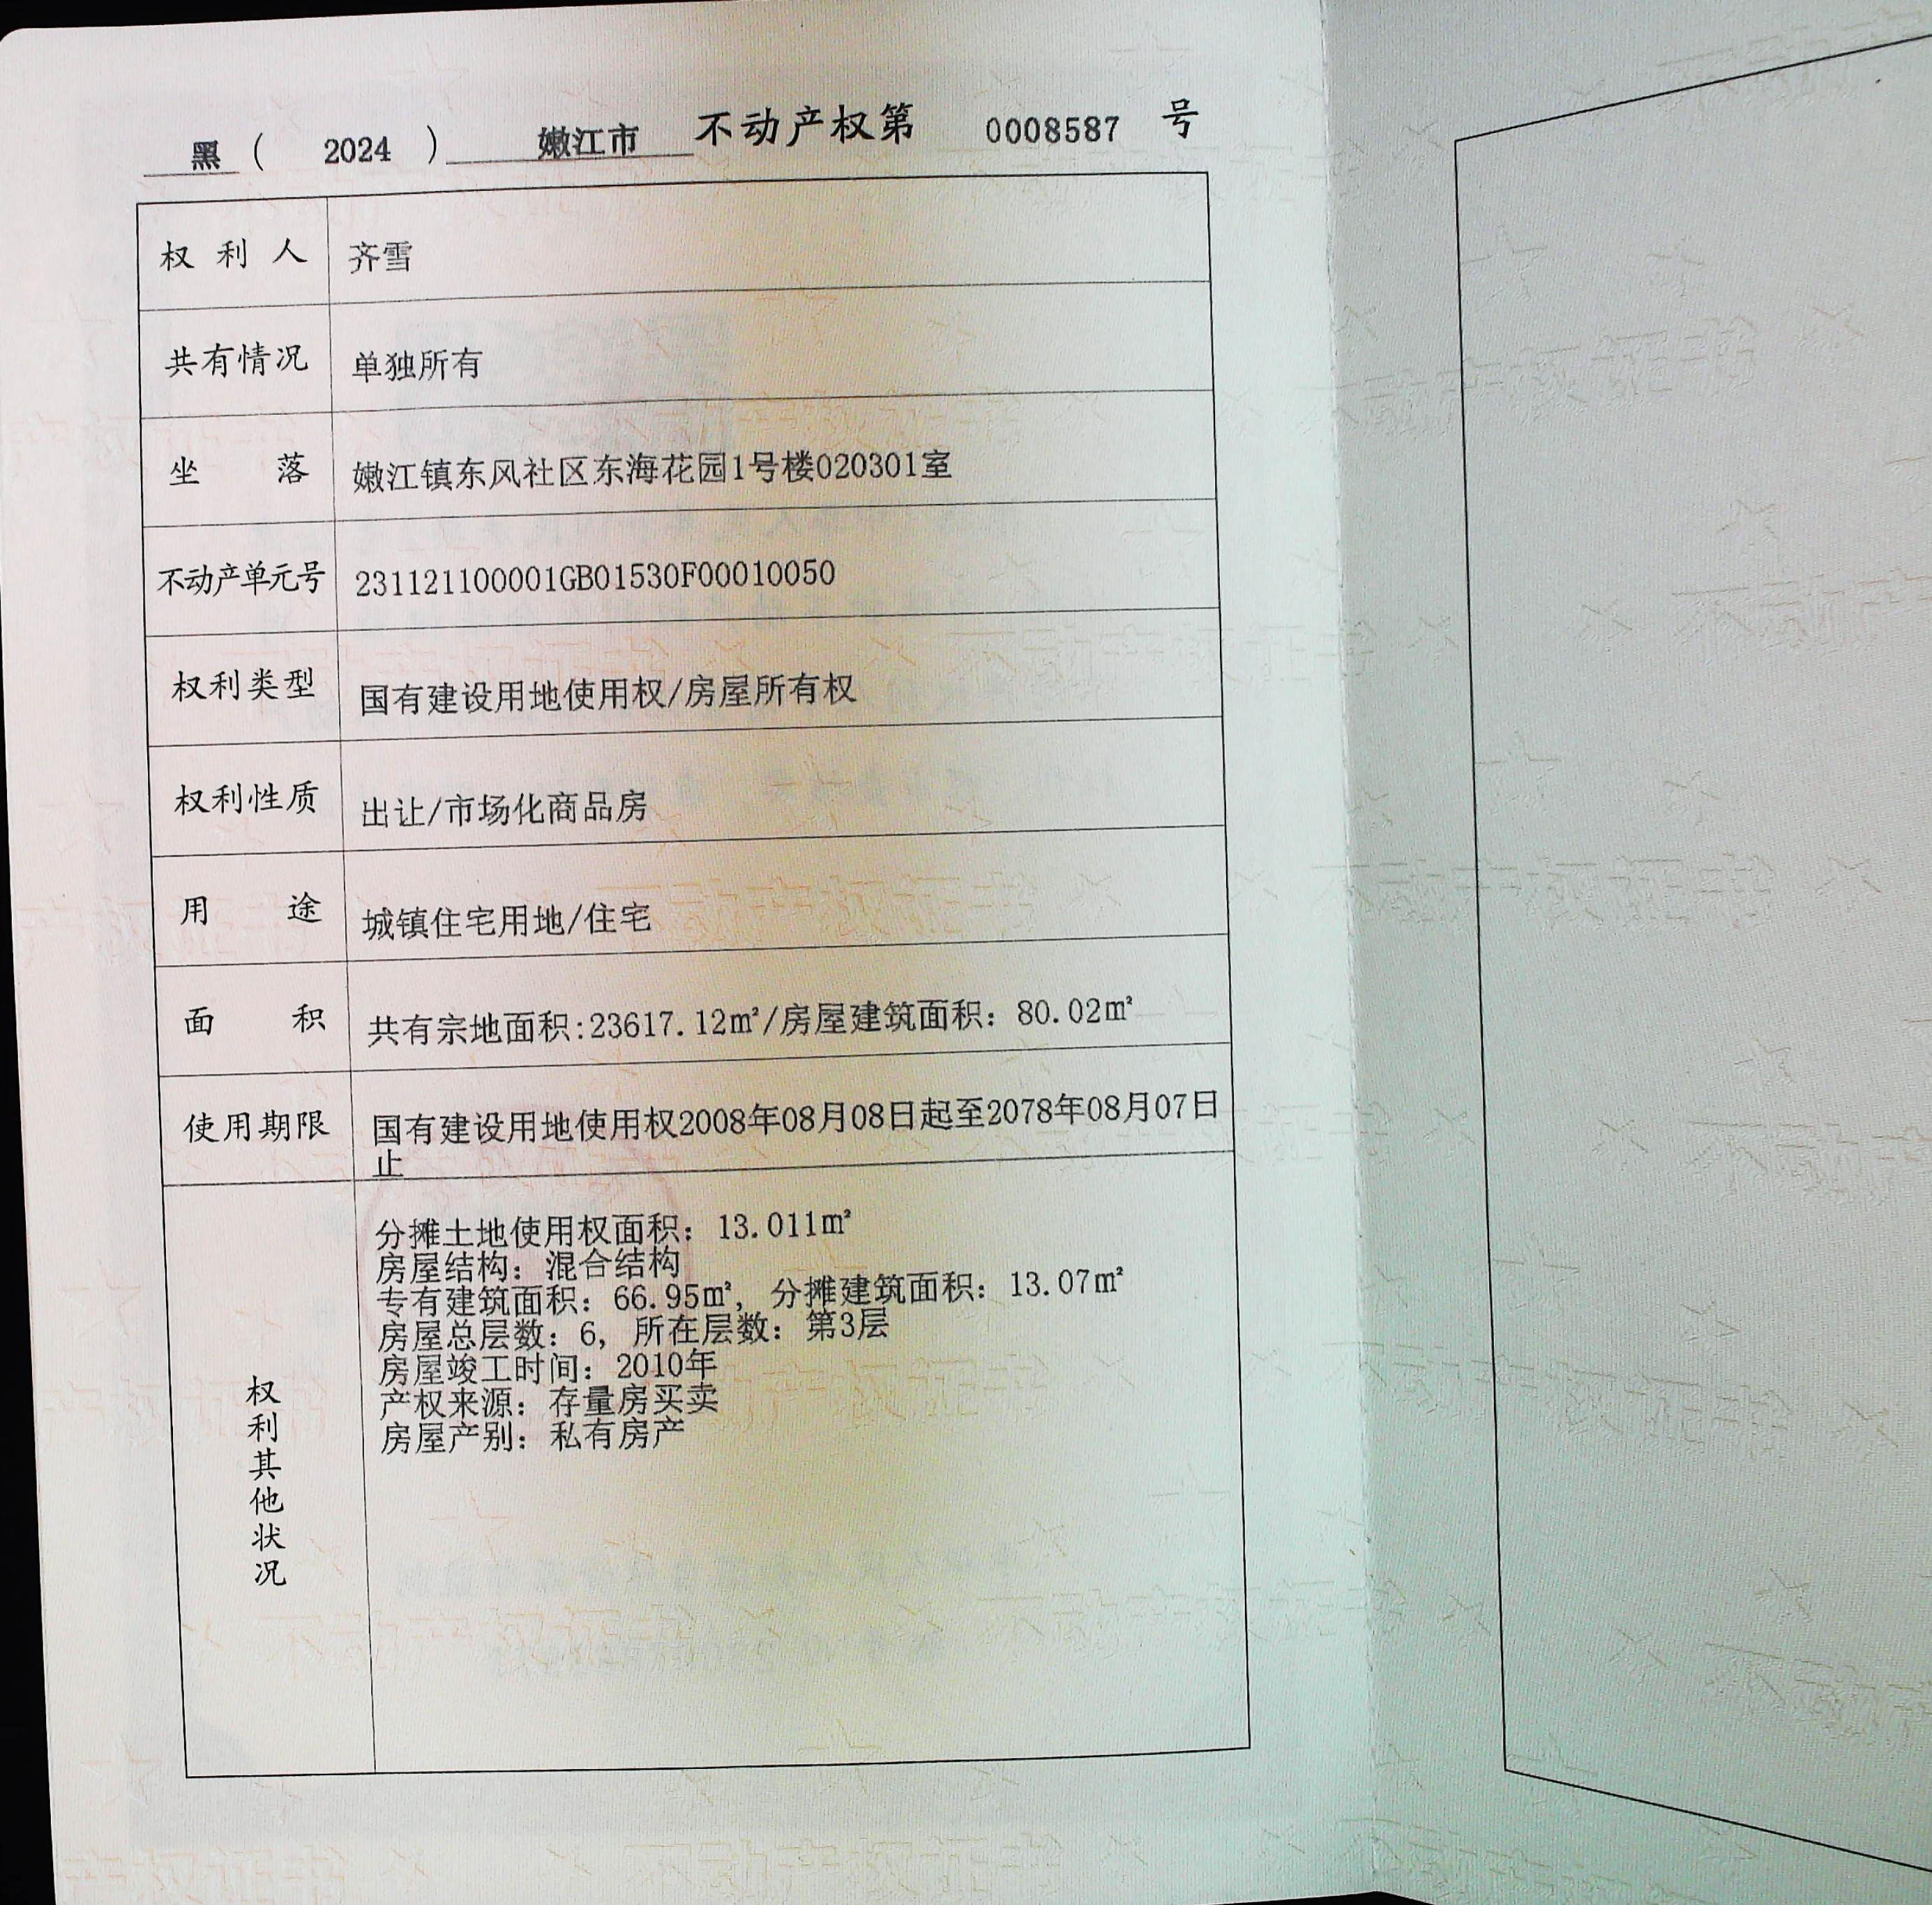 黑 ( 2024 ) 嫩江市 不动产权第 0008587 号
权利人 齐雪
共有情况 单独所有
坐落 嫩江镇东风社区东海花园1号楼020301室
不动产单元号 231121100001GB01530F00010050
权利类型 国有建设用地使用权/房屋所有权
权利性质 出让/市场化商品房
用途 城镇住宅用地/住宅
面积 共有宗地面积:23617.12㎡/房屋建筑面积：80.02㎡
使用期限 国有建设用地使用权2008年08月08日起至2078年08月07日
止
权利其他状况
分摊土地使用权面积：13.011㎡
房屋结构：混合结构
专有建筑面积：66.95㎡，分摊建筑面积：13.07㎡
房屋总层数：6，所在层数：第3层
房屋竣工时间：2010年
产权来源：存量房买卖
房屋产别：私有房产